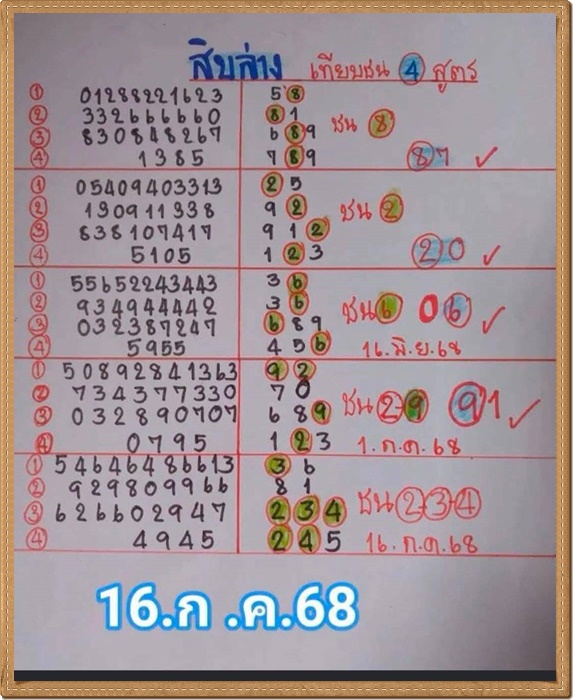 สิบล่าง เทียบชน 4 สูตร
① 01288221623 58
② 332666660 81 ชน 8
③ 830848267 689
④ 1385 789 87 ✓
① 05409403313 25
② 130911338 92 ชน 2
③ 838107417 912
④ 5105 123 20 ✓
① 55652243443 36
② 934944442 36 ชน 6 06 ✓
③ 032387247 689
④ 5955 456 16.มิ.ย.68
① 50892841363 92
② 734377330 70 ชน 2-9 91 ✓
③ 032890707 689
④ 0795 123 1.ก.ค.68
① 54646486613 36
② 929809966 81 ชน 2-3-4
③ 626602947 234
④ 4945 245 16.ก.ค.68
16.ก .ค.68